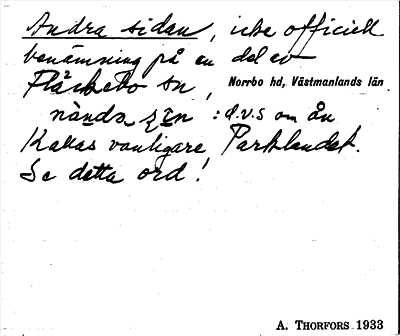 Andra sidan, icke officiell
benämning på en del av
Fläckebo sn, Norrbo hd, Västmanlands län
: d.v.s om ån
Kallas vanligare Parklandet.
Se detta ord!
A. THORFORS 1933